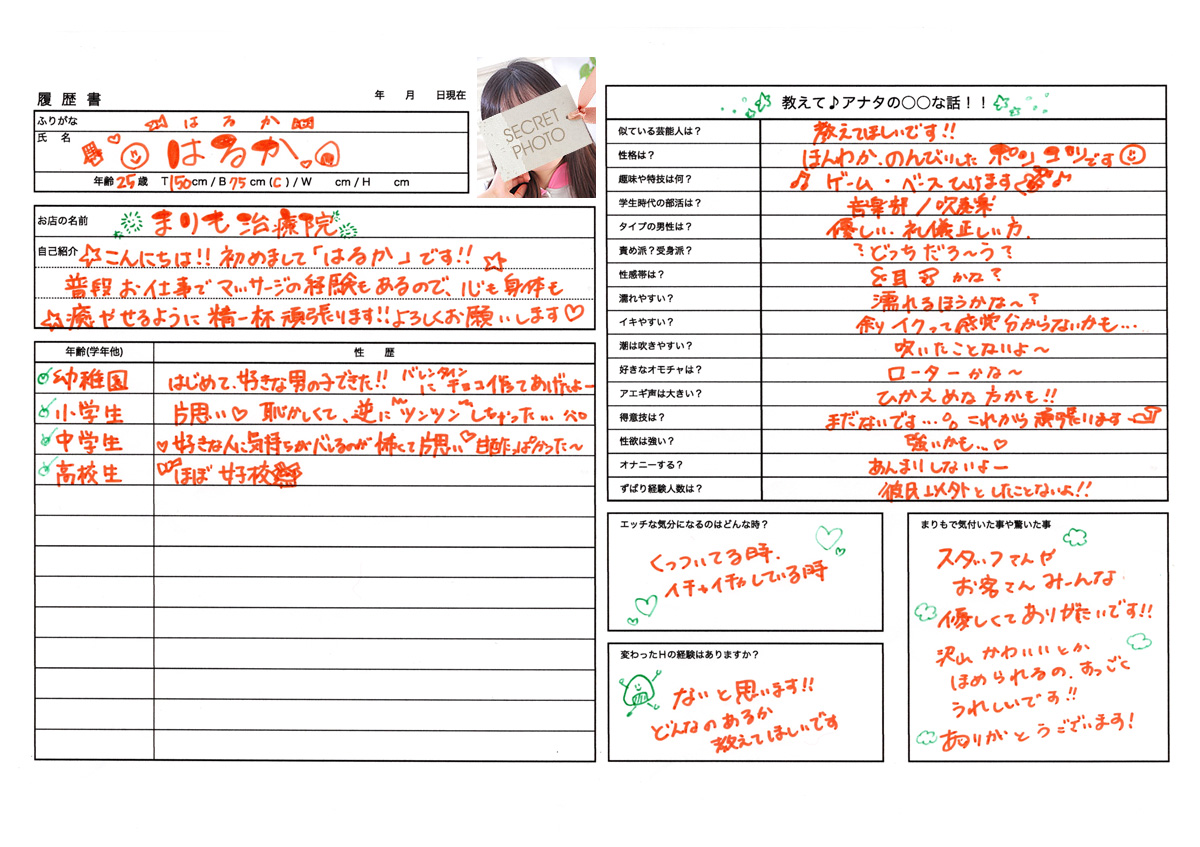 履歴書
年 月 日現在
SECRET PHOTO
ふりがな はるか
氏名 はるか
年齢 25 歳 T 150 cm / B 75 cm ( C ) / W cm / H cm
お店の名前 まりも治療院
自己紹介 こんにちは!! 初めまして「はるか」です!!
普段お仕事でマッサージの経験もあるので、心も身体も
癒やせるように精一杯頑張ります!!よろしくお願いします♡
年齢(学年他) 性歴
幼稚園 はじめて、好きな男の子できた!! バレンタインにチョコ作ってあげたよー
小学生 片思い♡ 恥かしくて、逆に"ツンツン"しちゃった…
中学生 ♡好きな人に気持ちがバレるのが怖くて片思い♡甘酢っぱかった〜
高校生 ほぼ女子校
教えて♪アナタの〇〇な話！！
似ている芸能人は? 教えてほしいです!!
性格は? ほんわか、のんびりしたポンコツです
趣味や特技は何? ♫ ゲーム・ベースひけます ♪
学生時代の部活は? 音楽部/吹奏楽
タイプの男性は? 優しい、礼儀正しい方、
責め派?受身派? ?どっちだろ〜う?
性感帯は? 耳かな?
濡れやすい? 濡れるほうかな〜?
イキやすい? 余りイクって感覚分からないかも…
潮は吹きやすい? 吹いたことないよ〜
好きなオモチャは? ローターかな〜
アエギ声は大きい? ひかえめな方かも!!
得意技は? まだないです…。これから頑張ります
性欲は強い? 強いかも…♡
オナニーする? あんまりしないよー
ずばり経験人数は? 彼氏以外としたことないよ!!
エッチな気分になるのはどんな時?
くっついてる時、
イチャイチャしている時
変わったHの経験はありますか?
ないと思います!!
どんなのあるか
教えてほしいです
まりもで気付いた事や驚いた事
スタッフさんや
お客さんみーんな
優しくてありがたいです!!
沢山かわいいとか
ほめられるの、すっごく
うれしいです!!
ありがとうございます!